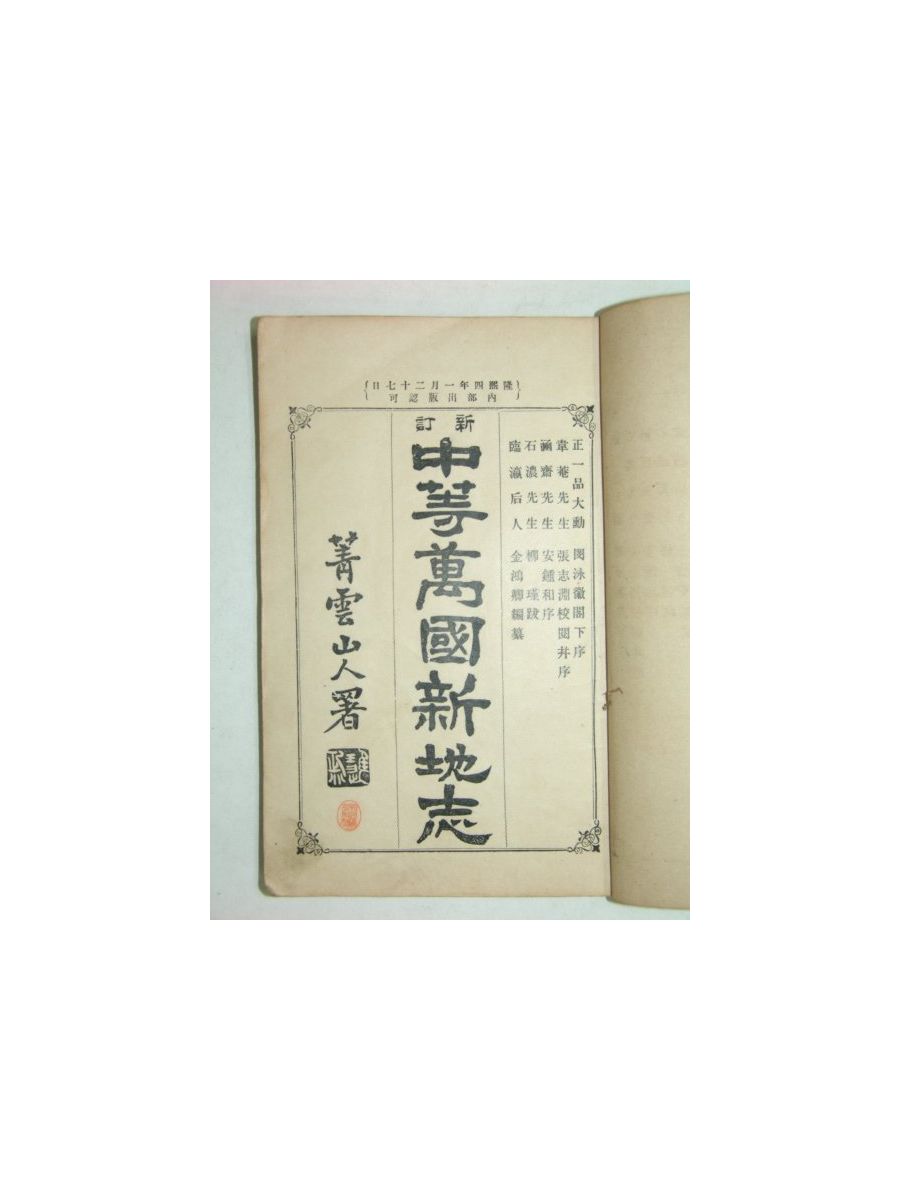 隆熙四年一月二十七日
內部出版認可
正一品大勳 閔泳徽閣下序
韋菴先生 張志淵校閱幷序
涵齋先生 安鍾和序
石濃先生 柳瑾跋
臨瀛后人 金鴻卿編纂
新訂
中等萬國新地志
菁雲山人署